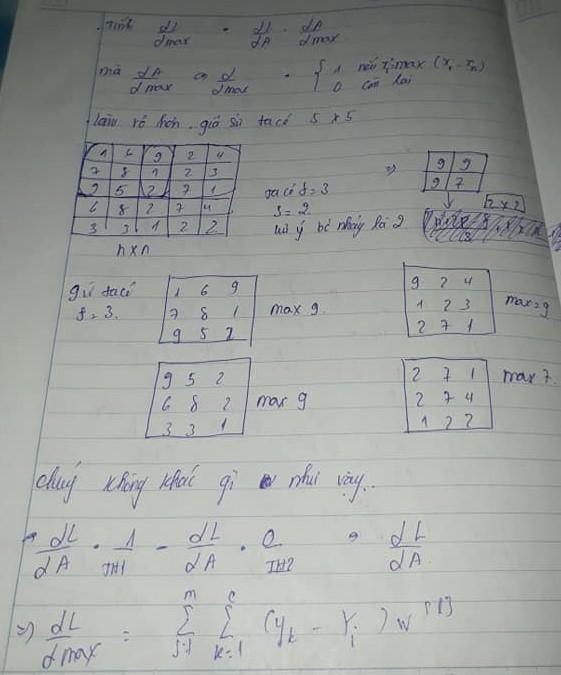 . Tính dL/dmax = dL/dA . dA/dmax
mà dA/dmax = d/dmax = { 1 nếu xi = max (x1 - xn)
0 còn lại
. làm rõ hơn . giả sử ta có 5 x 5
1 6 9 2 4
7 8 1 2 3
9 5 2 7 1
6 8 2 7 4
3 3 1 2 2
n x n
ta có f = 3
s = 2
bé nhảy là 2.
=> 9 9
9 7
2 x 2
ta có
f = 3.
1 6 9
7 8 1
9 5 2
max 9
9 2 4
1 2 3
2 7 1
max = 9
9 5 2
6 8 2
3 3 1
max 9
2 7 1
2 7 4
1 2 2
max 7
chú ý không khác gì như vậy..
dL/dA . 1/TH1 - dL/dA . 0/TH2 = dL/dA
=> dL/dmax = m Σ j=1 c Σ k=1 (yk - Yi) W [l]